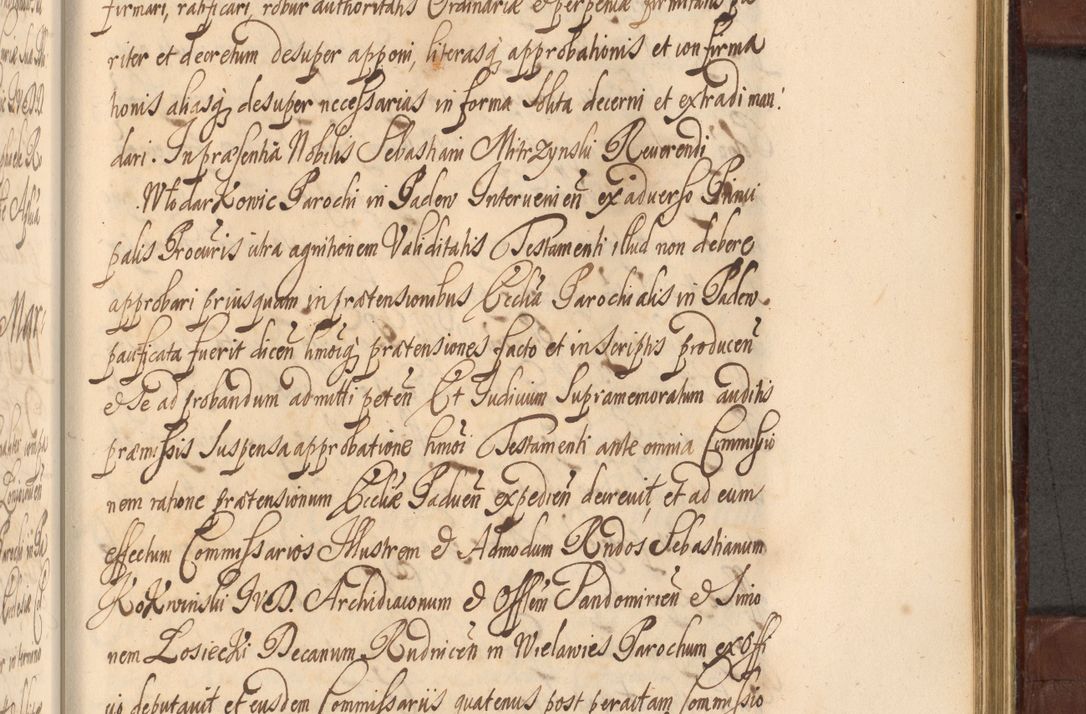 firmari, ratificari, robur authoritatis Ordinariæ et perpetuæ firmitatis pa
riter et decretum desuper apponi, literasq approbationis et confirma
tionis aliasq desuper necessarias in forma solita decerni et extradi man:
dari. In præsentia Nobilis Sebastiani Mitrzynski Reverendi
Włodarkowic Parochi in Padew Intervenien̄ ex adverso Princi
palis Procuris citra agnitionem Validitatis Testamenti illud non debere
approbari priusquam in prætensionibus Eccl̄ia Parochialis in Padew
pacificata fuerit dicen̄ hmōiq prætensiones facto et in scriptis producen̄
& Se ad probandum admitti peten̄ Et Judicium Supramemoratum auditis
præmissis suspensa approbatione hmōi Testamenti ante omnia Commissio
nem ratione prætensionum Eccl̄iæ Paduen̄ expedien̄ decrevit, et ad eum
effectum Commissarios Illustrem & Admodum Rndos Sebastianum
Kokwinski JVD. Archidiaconum & Offlem Sandomirien̄ & Simo
nem Łosiecki Decanum Rudnicen̄ in Wielawies Parochum ex Offi
cio deputavit et eusdem Commissariis quatenus post peractam Commissio